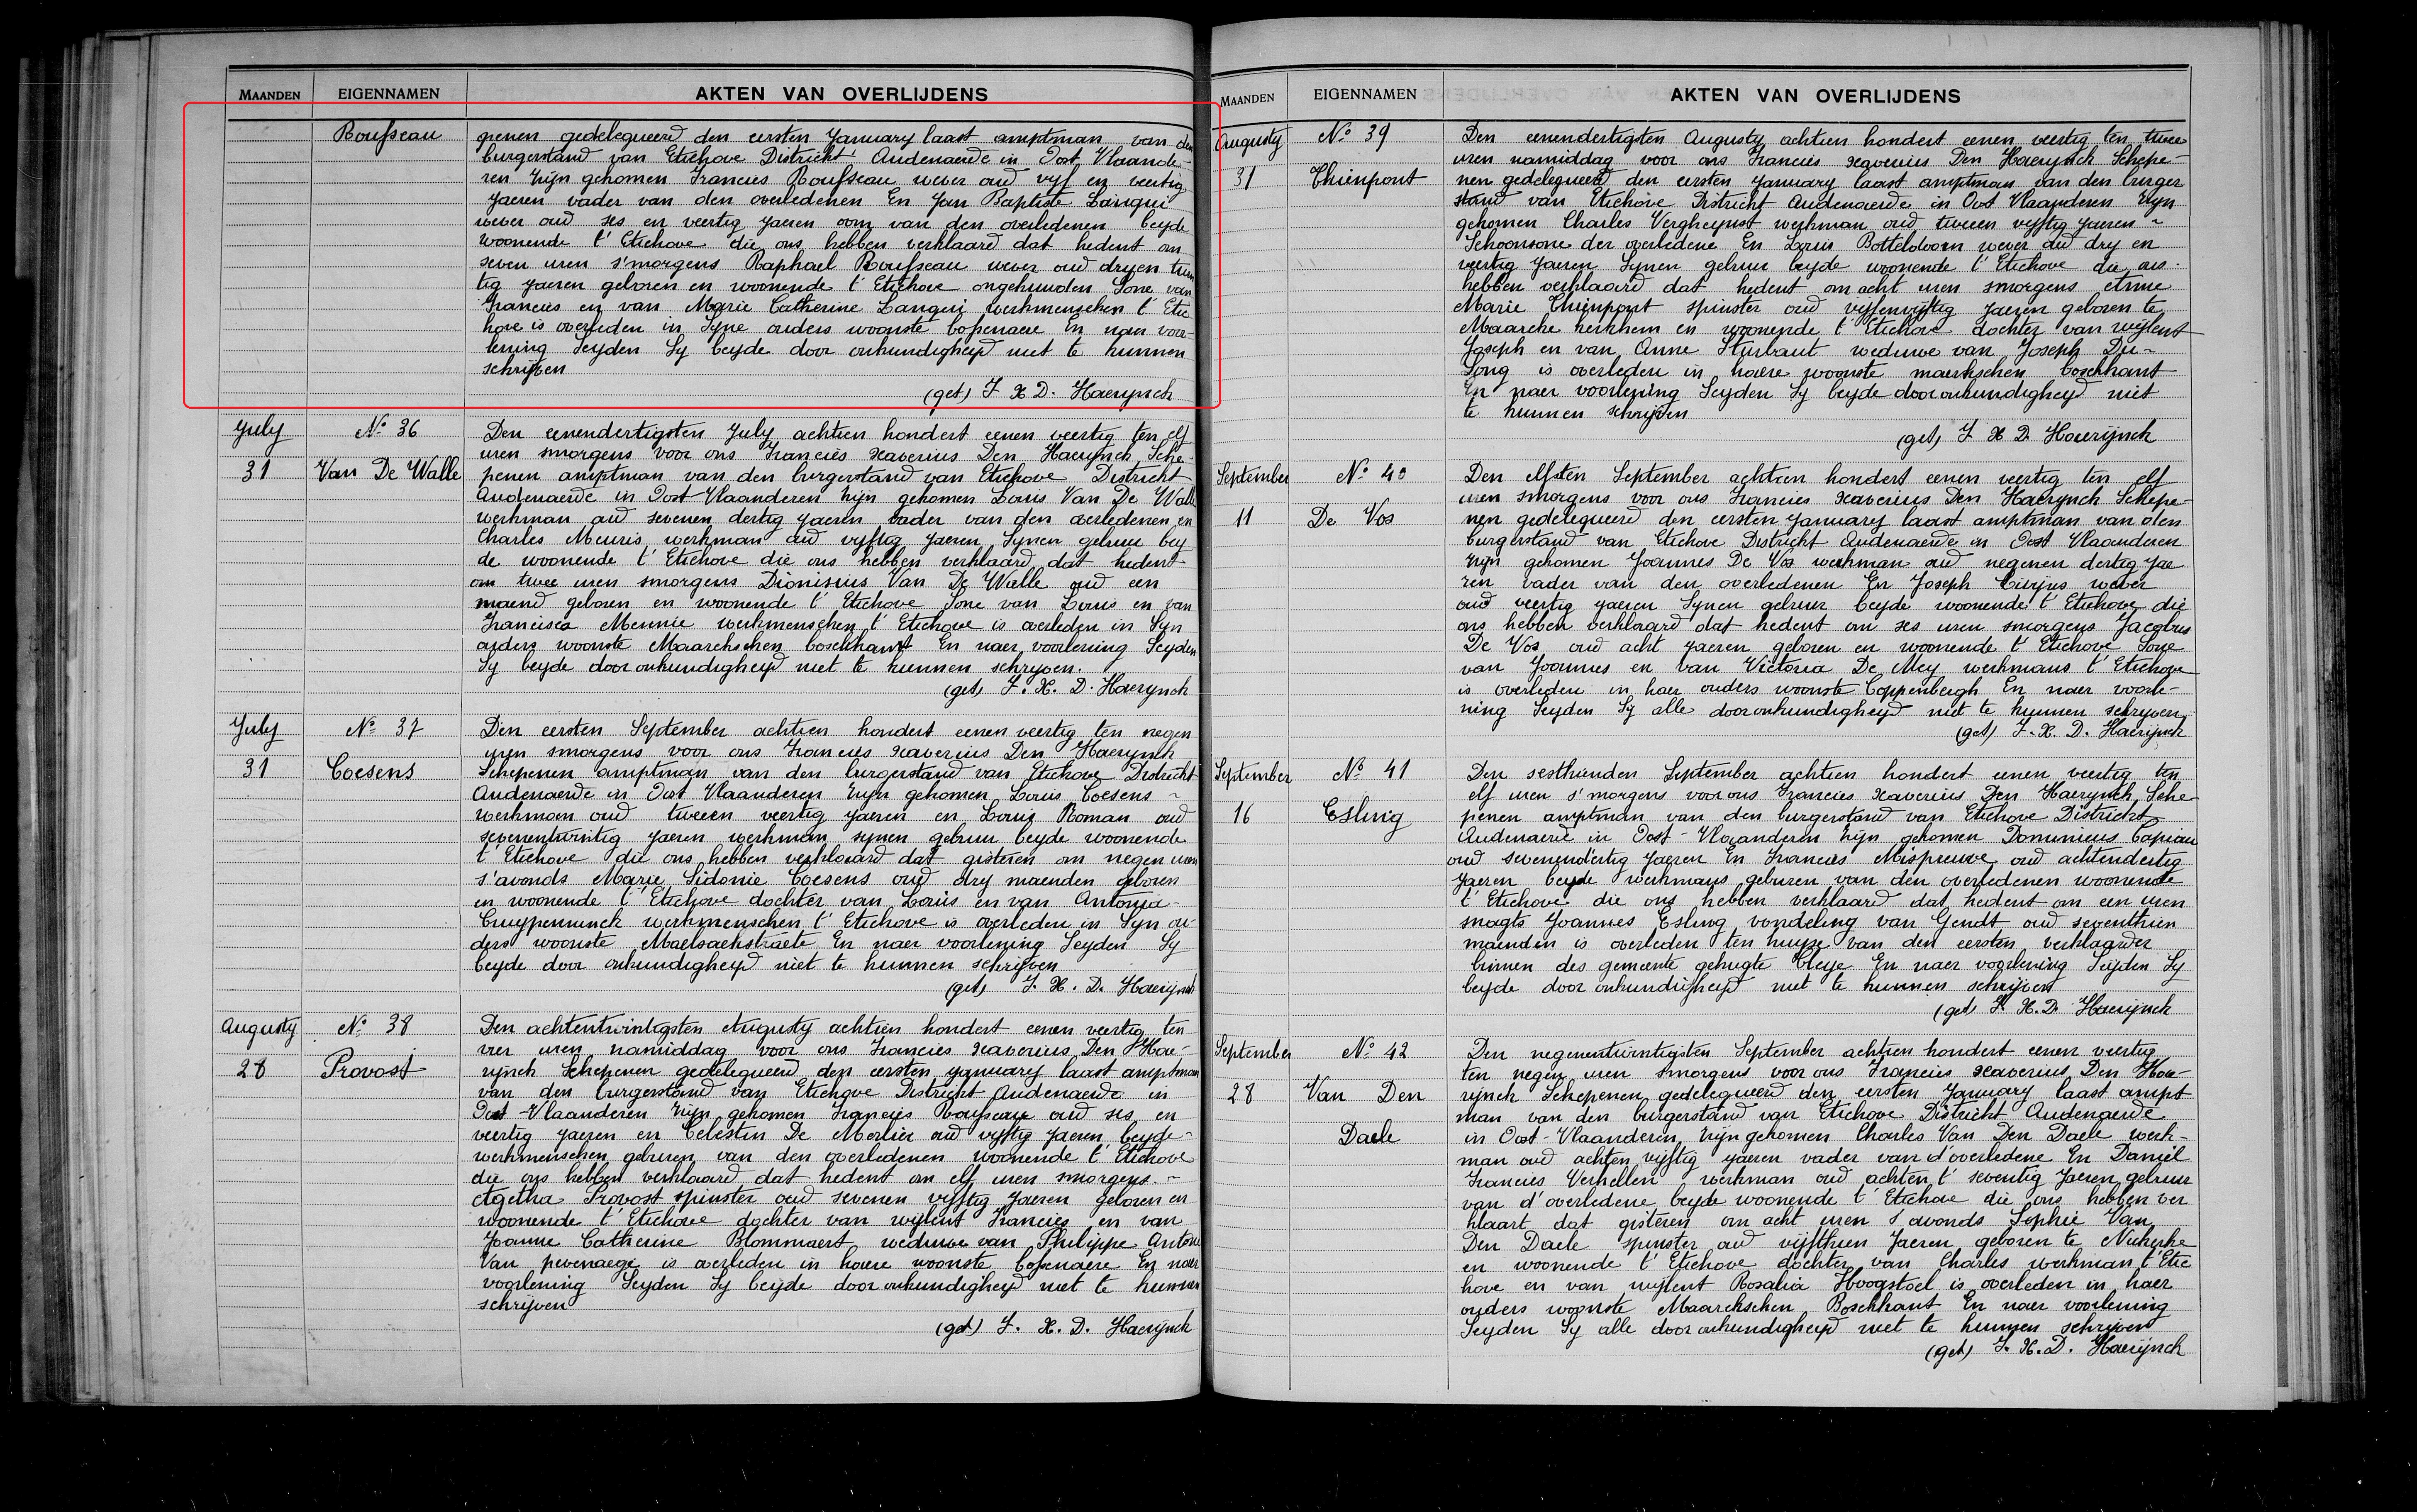 MAANDEN EIGENNAMEN AKTEN VAN OVERLIJDENS
Rousseau
penen gedelegueerd den eersten January laast amptman van den
burgerstand van Etichove District Audenaerde in Oost Vlaande-
ren zijn gekomen Francies Rousseau wever oud vyf en veertig
Jaeren vader van den overledenen En Jan Baptiste Langui
wever oud ses en veertig jaeren oom van den overledenen beyde
woonende t' Etichove die ons hebben verklaard dat hedent om
seven uren s'morgens Raphael Rousseau wever oud dryen twin
tig jaeren geloren en woonende t' Etichove ongehuwden Sone van
Francies en van Marie Catherine Langui werkmenschen t' Etic
hove is overleden in Syne ouders woonste bossenaere En naer voor-
lesing Seyden Sy beyde door onkundigheyd niet te kunnen
schrijven
(get) F X D. Haerynck
July
No 36
31
Van De Walle
Den eenendertigsten July achtien hondert eenen veertig ten elf
uren smorgens voor ons Francies Xaverius Den Haerynck Sche-
penen amptman van den burgerstand van Etichove District
Audenaerde in Oost-Vlaanderen zijn gekomen Louis Van De Walle
werkman oud sevenen dertig jaeren vader van den overledenen en
Charles Meuris werkman oud vyftig jaeren Synen gebuer bey
de woonende t' Etichove die ons hebben verklaard dat hedent
om twee uren smorgens Dionisius Van De Walle oud een
maend geboren en woonende t' Etichove Sone van Louis en van
Francisca Meunie werkmenschen t' Etichove is overleden in Syn
ouders woonste Maarckschen boschkant En naer voorlesing Seyden
Sy beyde door onkundigheyd niet te kunnen schryven.
(get) F. X. D. Haerynck
July
No 37
31
Coesens
Den eersten September achtien hondert eenen veertig ten negen
uren smorgens voor ons Francies Xaverius Den Haerynck
Schepenen amptman van den burgerstand van Etichove District
Audenaerde in Oost Vlaanderen zijn gekomen Louis Coesens -
werkman oud tweeen veertig jaeren en Louis Roman oud
sevenentwintig jaeren werkman synen gebuer beyde woonende
t' Etichove die ons hebben verklaard dat gisteren om negen uren
s'avonds Marie Sidonie Coesens oud dry maenden geboren
en woonende t' Etichove dochter van Louis en van Antonia
Cuyppenninck werkmenschen t' Etichove is overleden in Syn ou-
ders woonste Maelsackstraete En naer voorlesing Seyden Sy
beyde door onkundigheyd niet te kunnen schrijven
(get) F. X. D. Haerynck
Augusty
No 38
28
Provost
Den achtentwintigsten Augusty achtien hondert eenen veertig ten
vier uren namiddag voor ons Francies Xaverius Den Hae-
rynck Schepenen gedelegueerd den eersten january laast amptman
van den burgerstand van Etichove District Audenaerde in
Oost-Vlaanderen zijn gekomen Francies Rousseau oud ses en
veertig Jaeren en Celestin De Merlier oud vyftig jaeren beyde -
werkmenschen geburen van den overledenen woonende t' Etichove
die ons hebben verklaard dat hedent om elf uren smorgens. -
Agetha Provost spinster oud sevenen vyftig Jaeren geloren en
woonende t' Etichove dochter van wylent Francies en van
Joanne Catherine Blommaert weduwe van Philippe Antone
Van pevenaege is overleden in haere woonste bossenaere En naer
voorlesing Seyden Sy beyde door onkundigheyd niet te kunnen
schrijven
(get) F. X. D. Haerynck
MAANDEN EIGENNAMEN AKTEN VAN OVERLIJDENS
Augusty
No 39
31
Thienpont
Den eenendertigsten Augusty achtien hondert eenen veertig ten twee
uren namiddag voor ons Francies Xaverius Den Haerynck Schepe-
nen gedelegueerd den eersten january laast amptman van den burger
stand van Etichove District Audenaerde in Oost Vlaanderen Zyn
gekomen Charles Vergheynst werkman oud tweeen vyftig Jaeren -
Schoonsone der overledene En Louis Botteldoorn wever oud dry en
veertig Jaeren Synen gebuer beyde woonende t' Etichove die ons
hebben verklaard dat hedent om acht uren smorgens
Marie Thienpont spinster oud vyfenvyftig Jaeren geboren te
Maarcke kerkhem en woonende t' Etichove dochter van wylent
Joseph en van Anne Sturbaut weduwe van Joseph De-
Jong is overleden in haere woonste maerkschen boschkant
En naer voorlesing Seyden Sy beyde door onkundigheyd niet
te kunnen schrijven
(get) F. X D. Haerijnck
September
No 40
11
De Vos
Den elfsten September achtien hondert eenen veertig ten elf
uren smorgens voor ons Francies Xaverius Den Haerynck Schepe-
nen gedelegueerd den eersten January laast amptman van den
burgerstand van Etichove District Audenaerde in Oost Vlaanderen
zijn gekomen Joannes De Vos werkman oud negenen dertig Jae
ren vader van den overledenen En Joseph wever
oud veertig jaeren Synen gebuer beyde woonende t' Etichove die
ons hebben verklaard dat hedent om ses uren smorgens Jacobus
De Vos oud acht jaeren geboren en woonende t' Etichove Sone
van Joannes en van Victoria De Mey werkmans t' Etichove
is overleden in haer ouders woonste Coppenbergh En naer voorle-
ning Seyden Sy alle door onkundigheyd niet te kunnen schryven
(get) F. X. D. Haerijnck
September
No 41
16
Esling
Den sesthienden September achtien hondert eenen veertig ten
elf uren s'morgens voor ons Francies Xaverius Den Haerynck Sche
penen amptman van den burgerstand van Etichove District
Audenaerde in Oost-Vlaanderen Zijn gekomen Dominicus Capiau
oud sevenendertig Jaeren En Francies Mispreuve oud achtendertig
Jaeren beyde werkmans geburen van den overledenen woonende
t' Etichove die ons hebben verklaard dat hedent om een uren
snagts Joannes Esling vondeling van Gendt oud seventhien
maenden is overleden ten huyse van den eersten verklaarder
binnen des gemeente gehugte Cleye En naer voorlesing Seyden Sy
beyde door onkundigheyd niet te kunnen schrijven
(get) F. X. D. Haerijnck
September
No 42
28
Van Den
Daele
Den negenentwintigsten September achtien hondert eenen veertig
ten negen uren smorgens voor ons Francies Xaverius Den Hae-
rynck Schepenen gedelegueerd den eersten January laast ampt
man van den burgerstand van Etichove District Audenaerde
in Oost-Vlaanderen Zijn gekomen Charles Van Den Daele werk-
man oud achten vyftig jaeren vader van d'overledene En Daniël
Francies Verhellen werkman oud achten t' seventig Jaeren gebuer
van d'overledene beyde woonende t' Etichove die ons hebben ver
klaart dat gisteren om acht uren S'avonds Sophie Van
Den Daele spinster oud vijfthien Jaeren geboren te Nukerke
en woonende t' Etichove dochter van Charles werkman t' Etic
hove en van wylent Rosalia Hoogstoel is overleden in haer
ouders woonste Maarckschen Boschkant En naer voorlesing
Seyden Sy alle door onkundigheyd niet te kunnen schrijven
(get) F. X. D. Haerijnck